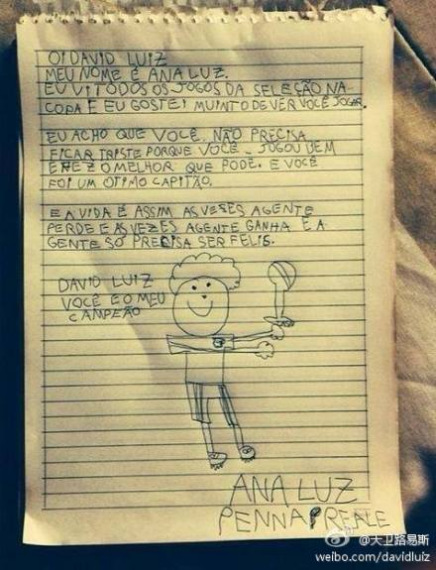 OI DAVID LUIZ
MEU NOME É ANA LUZ.
EU VI TODOS OS JOGOS DA SELEÇÃO NA
COPA E EU GOSTEI MUINTO DE VER VOCÊ JOGAR.
EU ACHO QUE VOCÊ, NÃO PRECISA
FICAR TRISTE PORQUE VOCÊ JOGOU BEM
E FEZ O MELHOR QUE PODE. E VOCÊ
FOI UM OTIMO CAPITÃO.
E A VIDA É ASSIM AS VESES AGENTE
PERDE E AS VESES AGENTE GANHA E A
GENTE SÓ PRECISA SER FELIS.
DAVID LUIZ
VOCÊ É O MEU
CAMPEÃO
ANA LUZ
PENNA REALE
@大卫路易斯
weibo.com/davidluiz